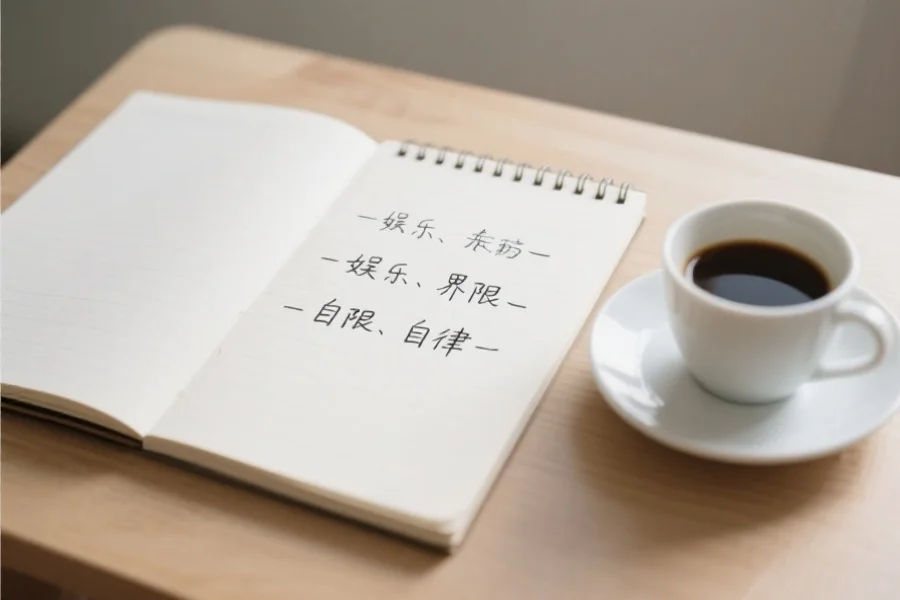 —娱乐、
—娱乐、界限—
—自限、自律—